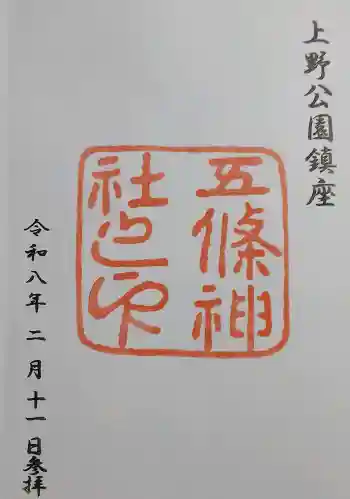 上野公園鎮座
五條神
社之印
令和八年二月十一日参拝